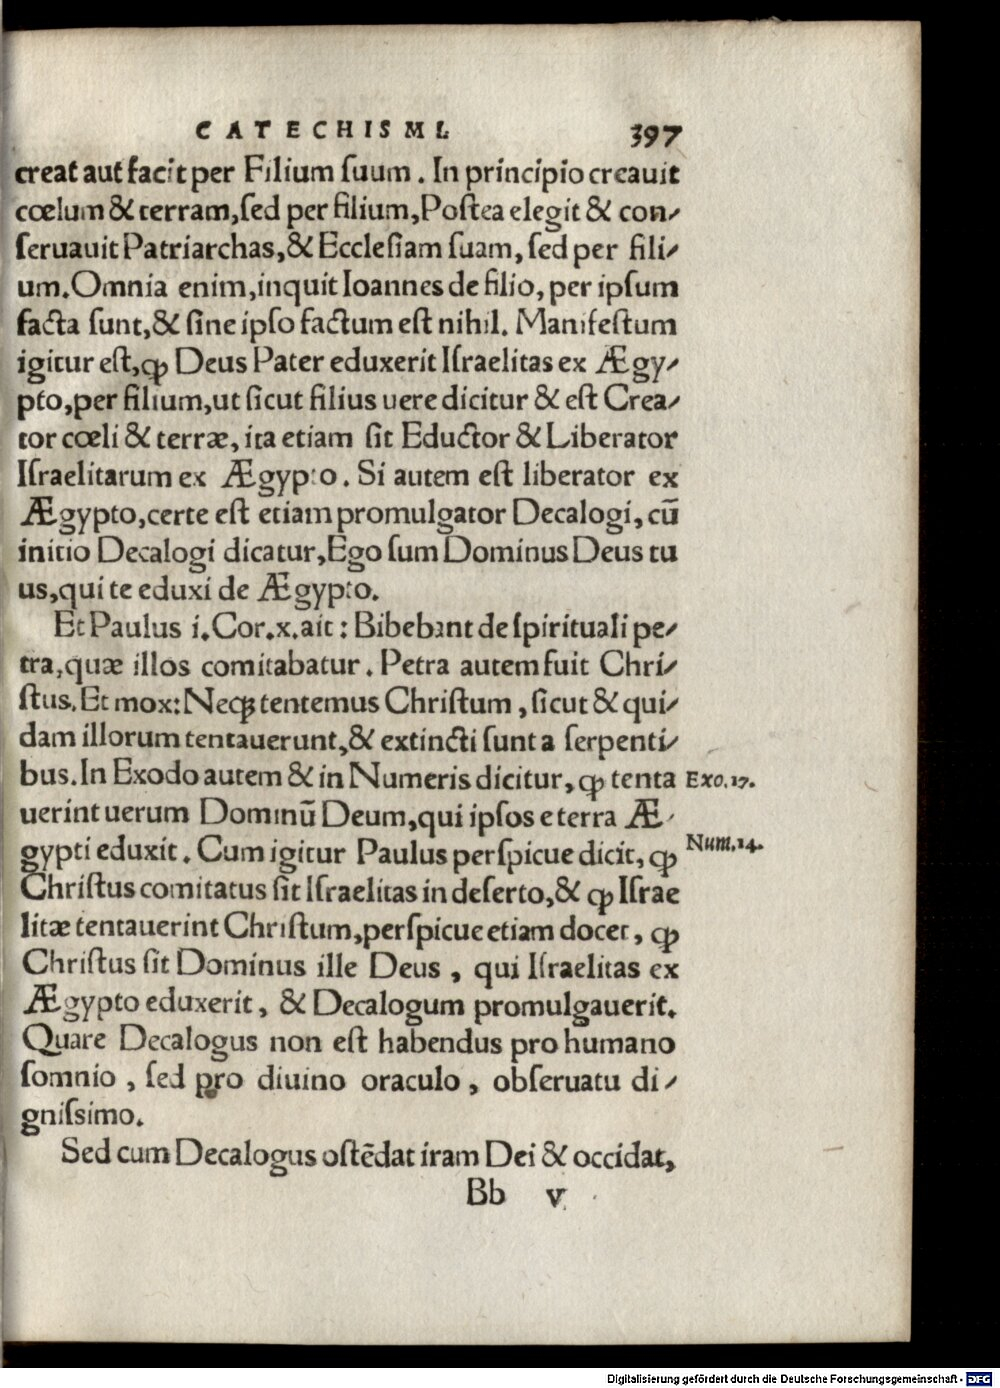 CATECHISMI. 397
creat aut facit per Filium ſuum. In principio creauit
cœlum & terram, ſed per filium, Poſtea elegit & con⸗
ſeruauit Patriarchas, & Eccleſiam ſuam, ſed per fili⸗
um. Omnia enim, inquit Ioannes de filio, per ipſum
facta ſunt, & ſine ipſo factum eſt nihil. Manifeſtum
igitur eſt, ꝙ Deus Pater eduxerit Iſraelitas ex Ægy⸗
pto, per filium, ut ſicut filius uere dicitur & eſt Crea⸗
tor cœli & terræ, ita etiam ſit Eductor & Liberator
Iſraelitarum ex Ægypto. Si autem eſt liberator ex
Ægypto, certe eſt etiam promulgator Decalogi, cū
initio Decalogi dicatur, Ego ſum Dominus Deus tu
us, qui te eduxi de Ægypto.
Et Paulus i. Cor. x. ait: Bibebant de ſpirituali pe⸗
tra, quæ illos comitabatur. Petra autem fuit Chri⸗
ſtus. Et mox: Neqꝫ tentemus Chriſtum, ſicut & qui⸗
dam illorum tentauerunt, & extincti ſunt a ſerpenti⸗
bus. In Exodo autem & in Numeris dicitur, ꝙ tenta Exo. 17.
uerint uerum Dominū Deum, qui ipſos e terra Æ⸗
gypti eduxit. Cum igitur Paulus perſpicue dicit, ꝙ Num. 14.
Chriſtus comitatus ſit Iſraelitas in deſerto, & ꝙ Iſrae
litæ tentauerint Chriſtum, perſpicue etiam docet, ꝙ
Chriſtus ſit Dominus ille Deus, qui Iſraelitas ex
Ægypto eduxerit, & Decalogum promulgauerit.
Quare Decalogus non eſt habendus pro humano
ſomnio, ſed pro diuino oraculo, obſeruatu di⸗
gniſsimo.
Sed cum Decalogus oſtēdat iram Dei & occidat,
Bb v
Digitalisierung gefördert durch die Deutsche Forschungsgemeinschaft - DFG